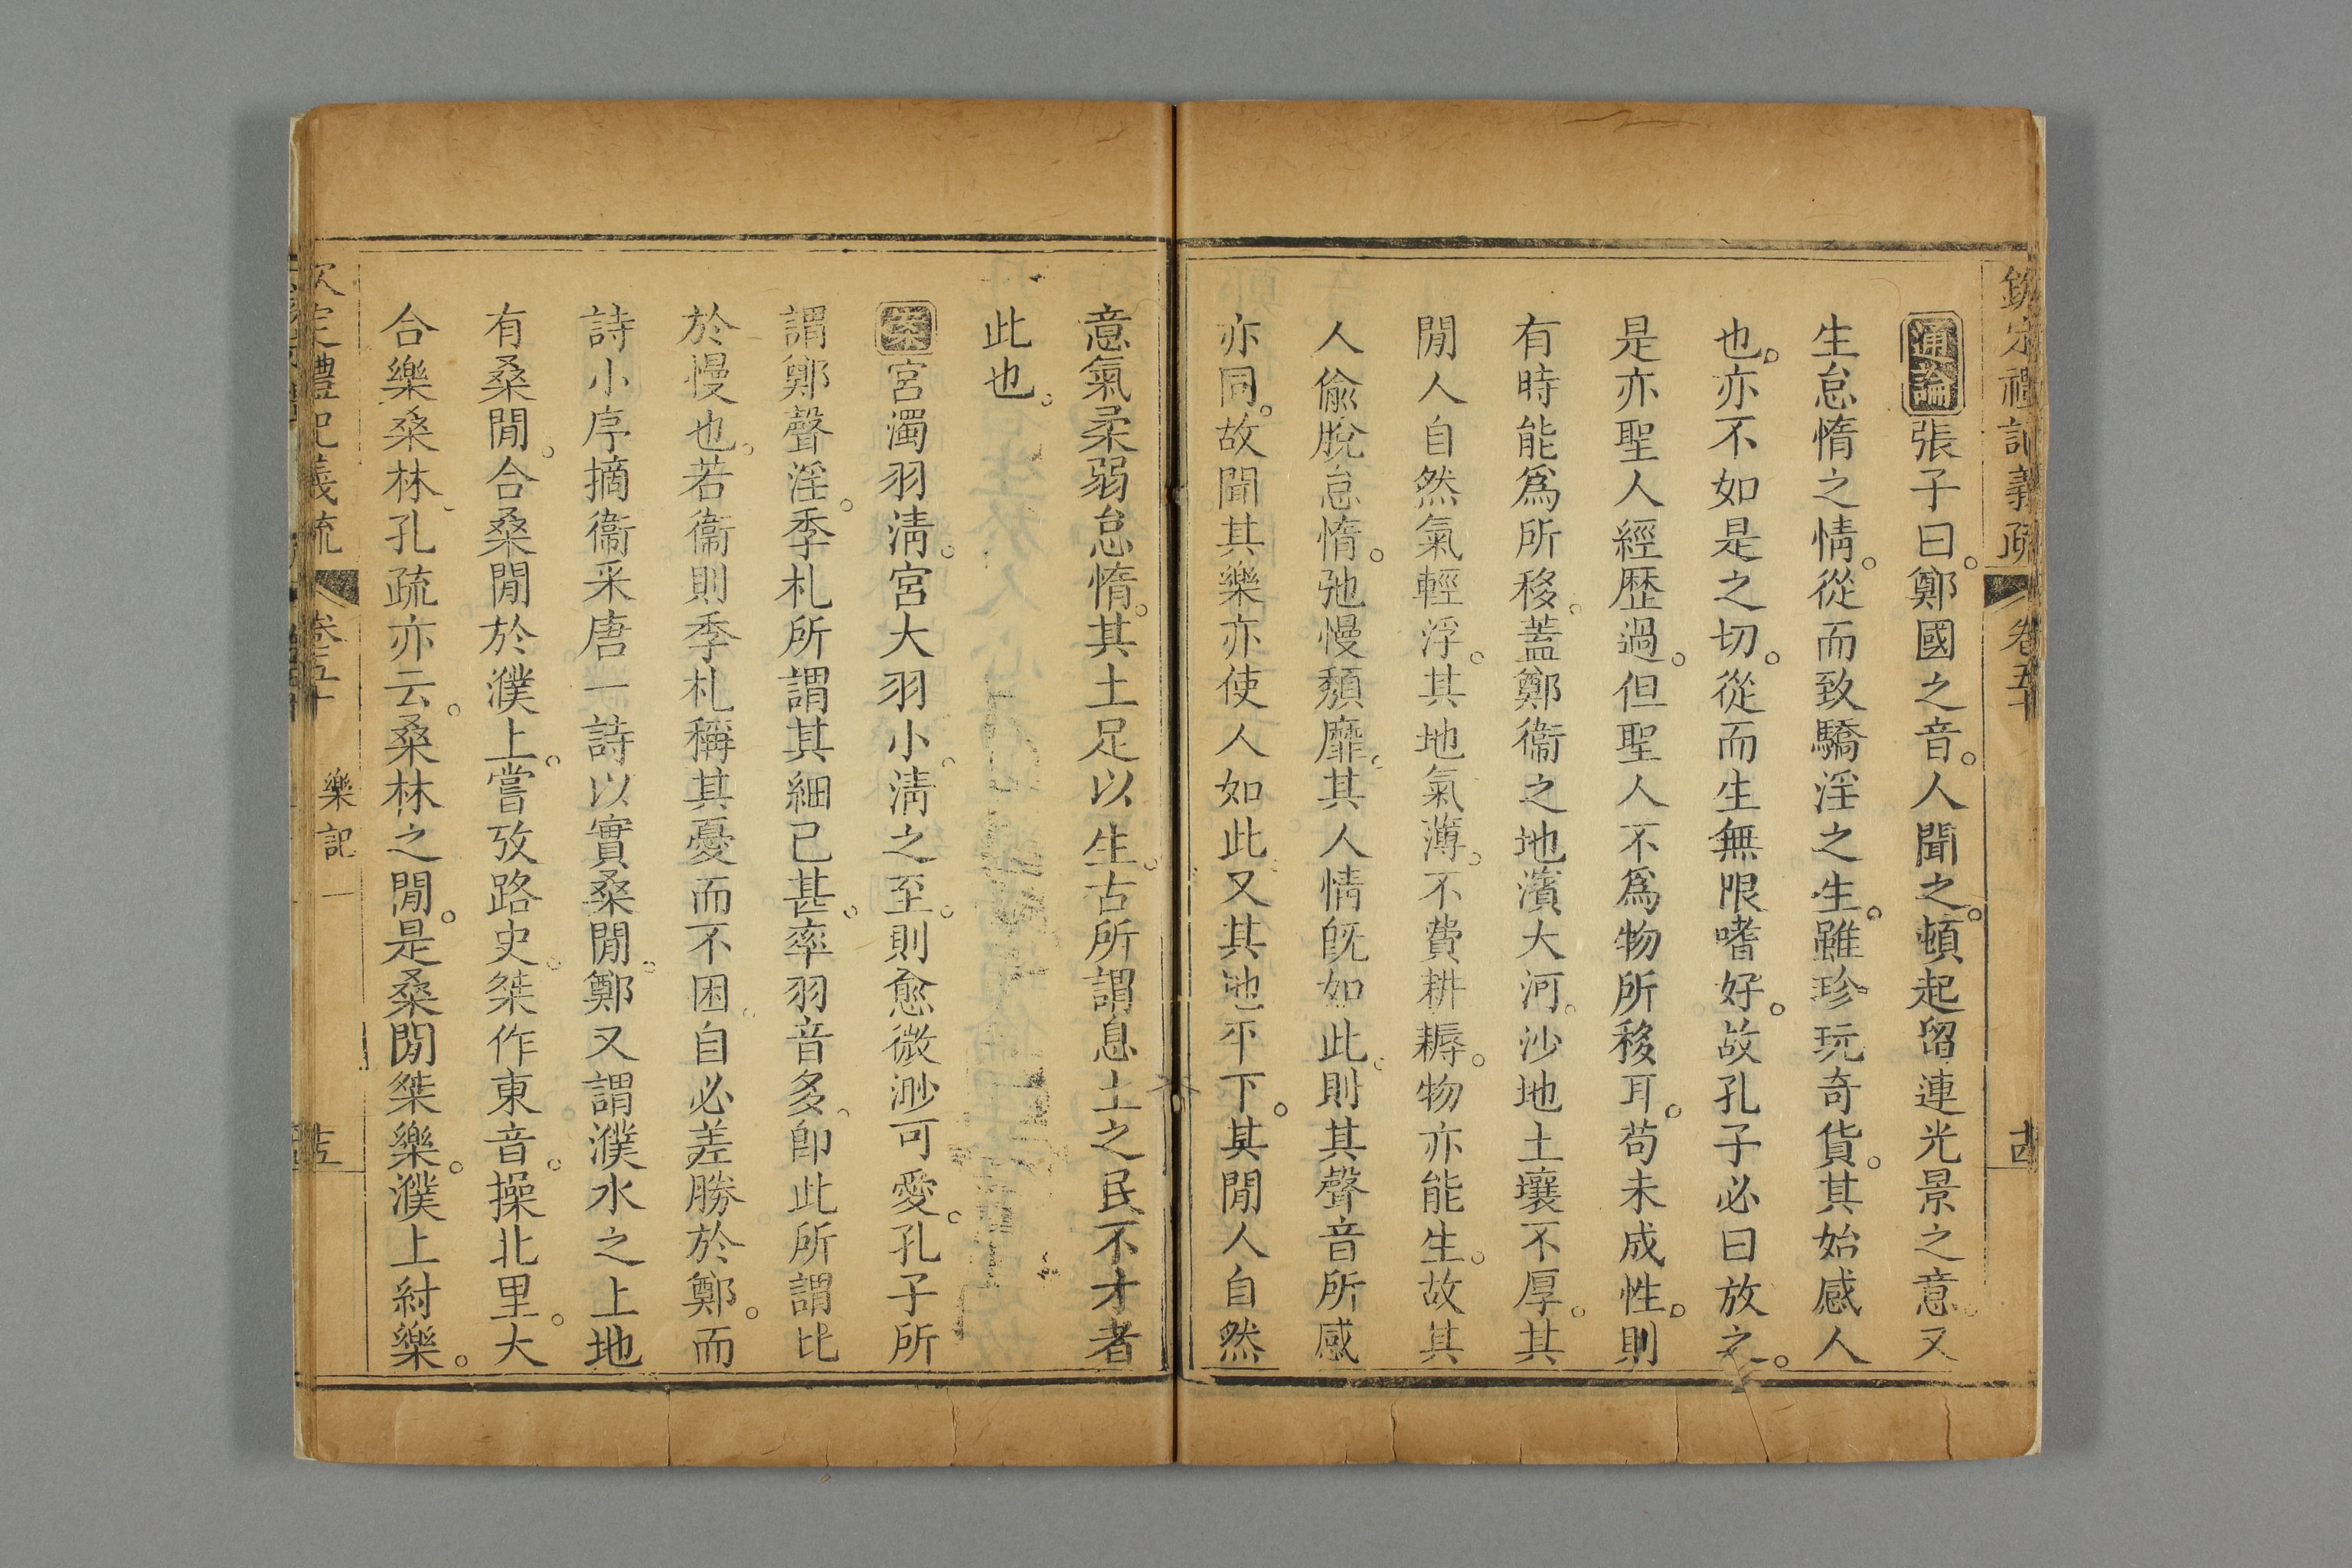 欽定禮記義疏 卷五十 古
通論張子曰。鄭國之音。人聞之。頓起留連光景之意。又
生怠惰之情。從而致驕淫之生。雖珍玩奇貨。其始感人
也。亦不如是之切。從而生無限嗜好。故孔子必曰放之。
是亦聖人經歴過。但聖人不爲物所移耳。苟未成性。則
有時能爲所移。蓋鄭衞之地濱大河。沙地土壤不厚。其
閒人自然氣輕浮。其地氣薄。不費耕耨。物亦能生。故其
人偷脫怠惰。弛慢頹靡。其人情旣如此。則其聲音所感
亦同。故聞其樂亦使人如此。又其地平下。其閒人自然
意氣柔弱怠惰。其土足以生。古所謂息土之民不才者
此也。
案宮濁羽淸。宮大羽小。淸之至。則愈微渺可愛。孔子所
謂鄭聲淫。季札所謂其細已甚。率羽音多。卽此所謂比
於慢也。若衞則季札稱其憂而不困。自必差勝於鄭。而
詩小序摘衞采唐一詩以實桑閒。鄭又謂濮水之上地
有桑閒。合桑閒於濮上。嘗攷路史。桀作東音。操北里。大
合樂桑林。孔疏亦云。桑林之閒。是桑閒桀樂。濮上紂樂。
欽定禮記義疏 卷五十 樂記一 十五